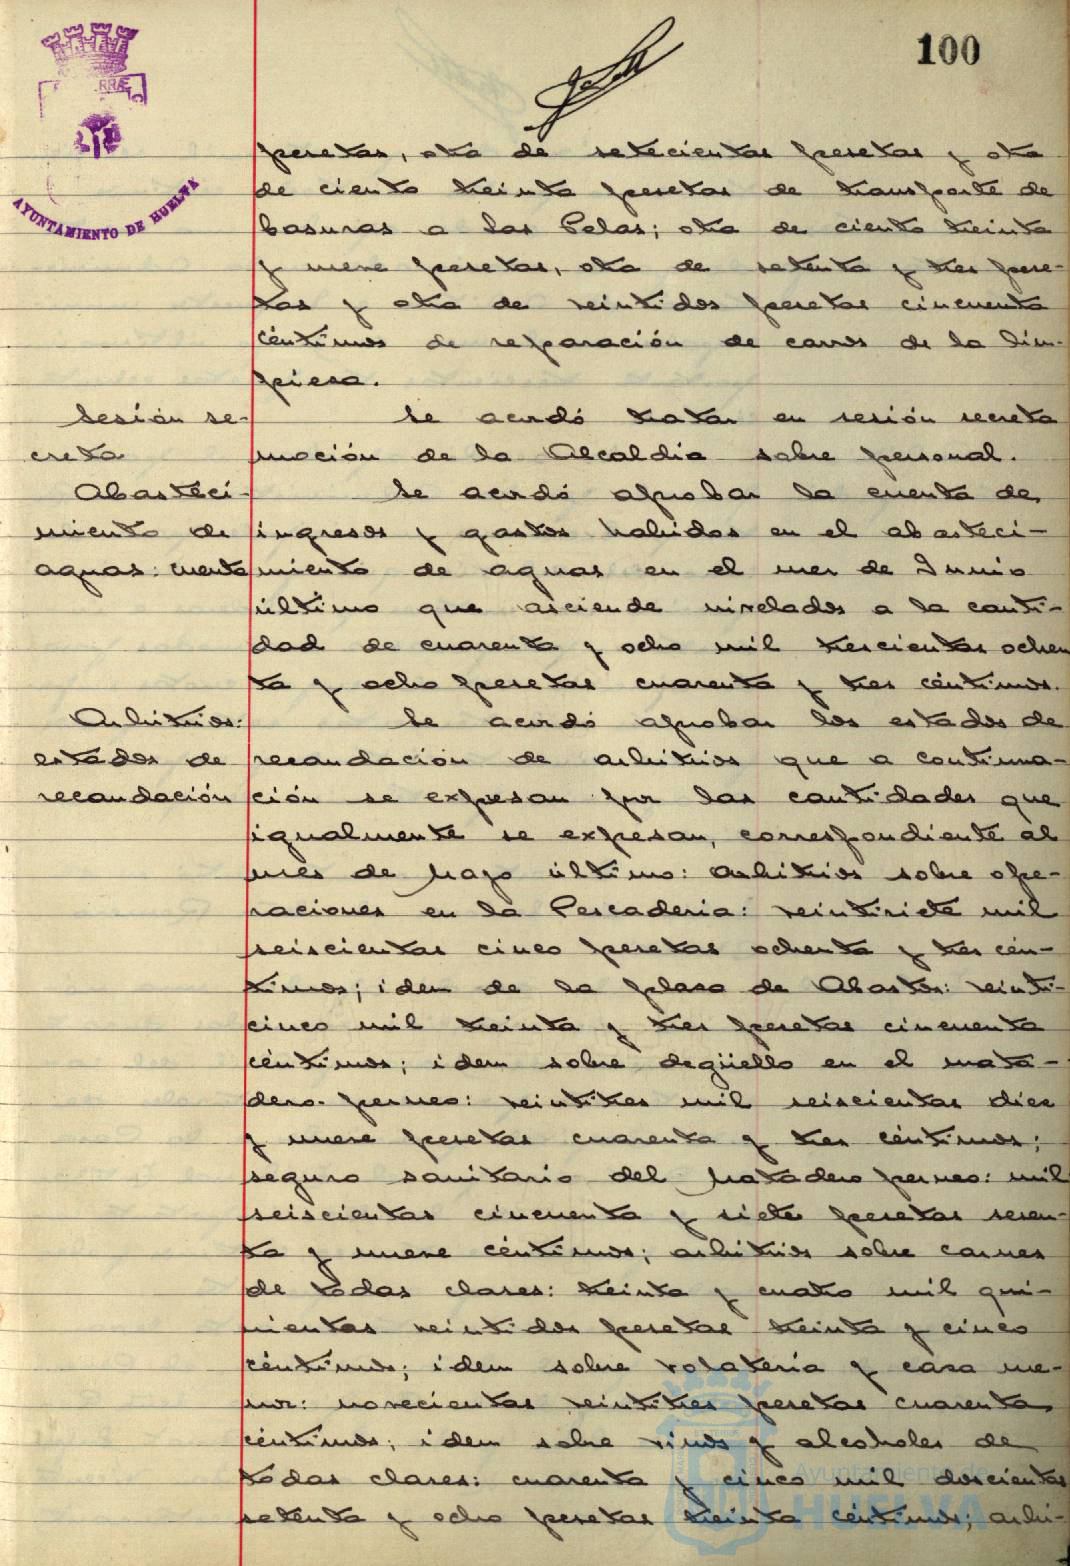 100
AYUNTAMIENTO DE HUELVA
pesetas, otra de setecientas pesetas y otra
de ciento treinta pesetas de transporte de
basuras a las Pelas; otra de ciento treinta
y nueve pesetas, otra de setenta y tres pese-
tas y otra de veintidos pesetas cincuenta
céntimos de reparación de carros de la lim-
pieza.
Sesión se-
creta
Se acordó tratar en sesión secreta
moción de la Alcaldia sobre personal.
Abasteci-
miento de
aguas: cuenta
Se acordó aprobar la cuenta de
ingresos y gastos habidos en el abasteci-
miento de aguas en el mes de Junio
último que asciende nivelados a la canti-
dad de cuarenta y ocho mil trescientas ochen
ta y ocho pesetas cuarenta y tres céntimos.
Arbitrios:
estados de
recaudación
Se acordó aprobar los estados de
recaudación de arbitrios que a continua-
ción se expresan por las cantidades que
igualmente se expresan, correspondiente al
mes de Mayo último: arbitrios sobre ope-
raciones en la Pescaderia: veintisiete mil
seiscientas cinco pesetas ochenta y tres cén-
timos; idem de la plaza de Abastos: veinti-
cinco mil treinta y tres pesetas cincuenta
céntimos; idem sobre degüello en el mata-
dero. perneo: veintitres mil seiscientas diez
y nueve pesetas cuarenta y tres céntimos;
seguro sanitario del Matadero perneo: mil
seiscientas cincuenta y siete pesetas sesen-
ta y nueve céntimos; arbitrios sobre carnes
de todas clases: treinta y cuatro mil qui-
nientas veintidos pesetas treinta y cinco
céntimos; idem sobre volateria y caza me-
nor: novecientas veintitres pesetas cuarenta
céntimos; idem sobre vinos y alcoholes de
todas clases: cuarenta y cinco mil doscientas
setenta y ocho pesetas treinta céntimos; arbi-
Ayuntamiento de
HUELVA